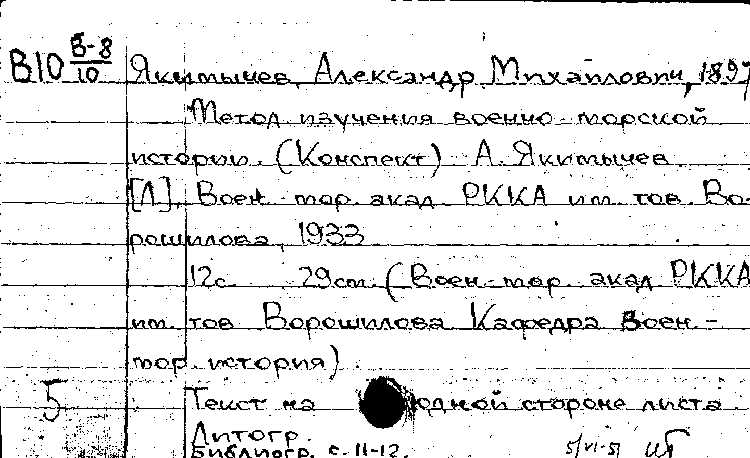 В10 В-8/10 Якимычев, Александр Михайлович, 1897
Метод изучения военно-морской
истории. (Конспект) А. Якимычев
[Л], Воен. мор. акад. РККА им. тов. Во-
рошилова, 1933
12с. 29см. (Воен.-мор. акад. РККА
им. тов Ворошилова Кафедра воен.-
мор. история)
5 Текст на одной стороне листа.
Литогр.
Библиогр. с. 11-12. 5/VI-51